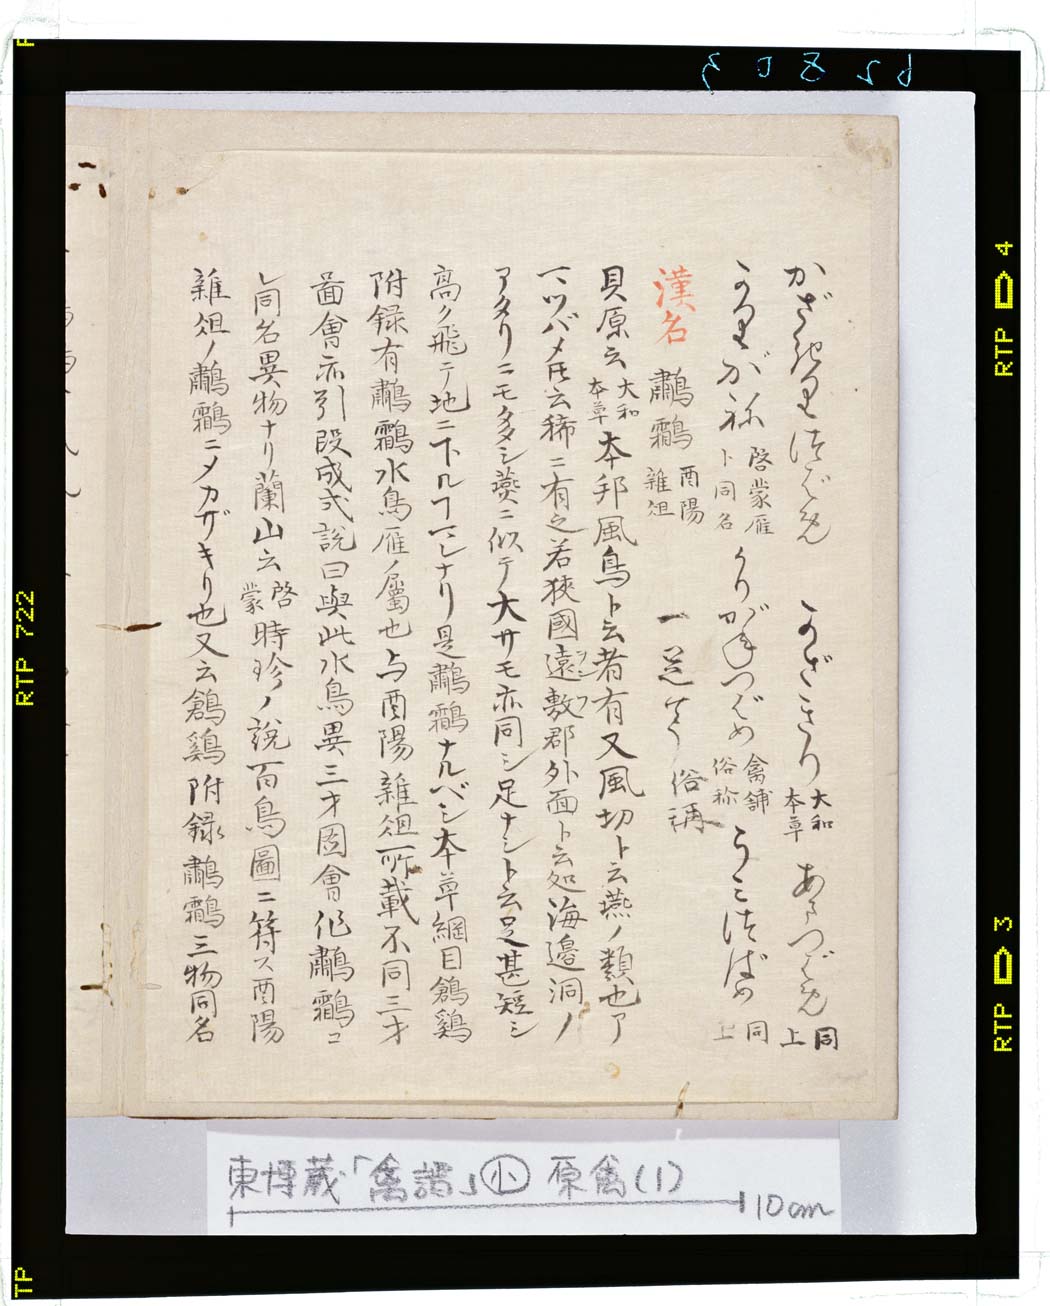 かざきりつばめ かざきり 大和本草 あまつばめ 同上
かりがね 啓蒙雁ト同名 かりがねつばめ 禽舗俗称 うみつばめ 同上
漢名 鷫鸘 酉陽雑俎 一足鳥 俗稱
貝原云 大和本草 本邦風鳥ト云者有又風切ト云燕ノ類也ア
マツバメ𪜈云稀ニ有之若狹國遠敷郡外面ト云処海邊洞ノ
アタリニモ多シ燕ニ似テ大サモ亦同シ足ナシト云足甚短シ
高ク飛テ地ニ下ルヿマレナリ是鷫鸘ナルベシ本草綱目鶬鷄
附録有鷫鸘水鳥雁ノ屬也与酉陽雜俎所載不同三才
啚會亦引段成式說曰與此水鳥異三才圖會作鷫鸘コ
レ同名異物ナリ蘭山云 啓蒙 時珍ノ說百鳥圖ニ符ス酉陽
雜俎ノ鷫鸘ニメカザキリ也又云鶬鷄附録鷫鸘三物同名
東博蔵「禽譜」小 原禽(1)
10cm
RTP 4
RTP 3
RTP 722